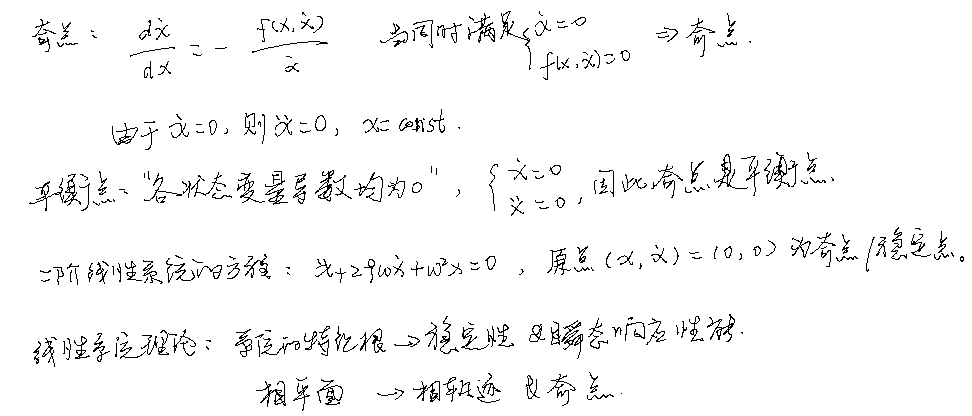 奇点： dẋ/dx = - f(x,ẋ)/ẋ 当同时满足 { ẋ=0 f(x,ẋ)=0 ⇒ 奇点.
由于 ẋ=0, 则 ẍ=0, x=const.
平衡点："各状态变量导数均为0", { ẋ=0 ẍ=0, 因此奇点是平衡点.
二阶线性系统的方程： ẍ+2ζωẋ+ω²x=0 , 原点 (x,ẋ)=(0,0) 为奇点/稳定点。
线性系统理论：系统的特征根→稳定性 & 瞬态响应性能.
相平面 → 相轨迹 & 奇点.